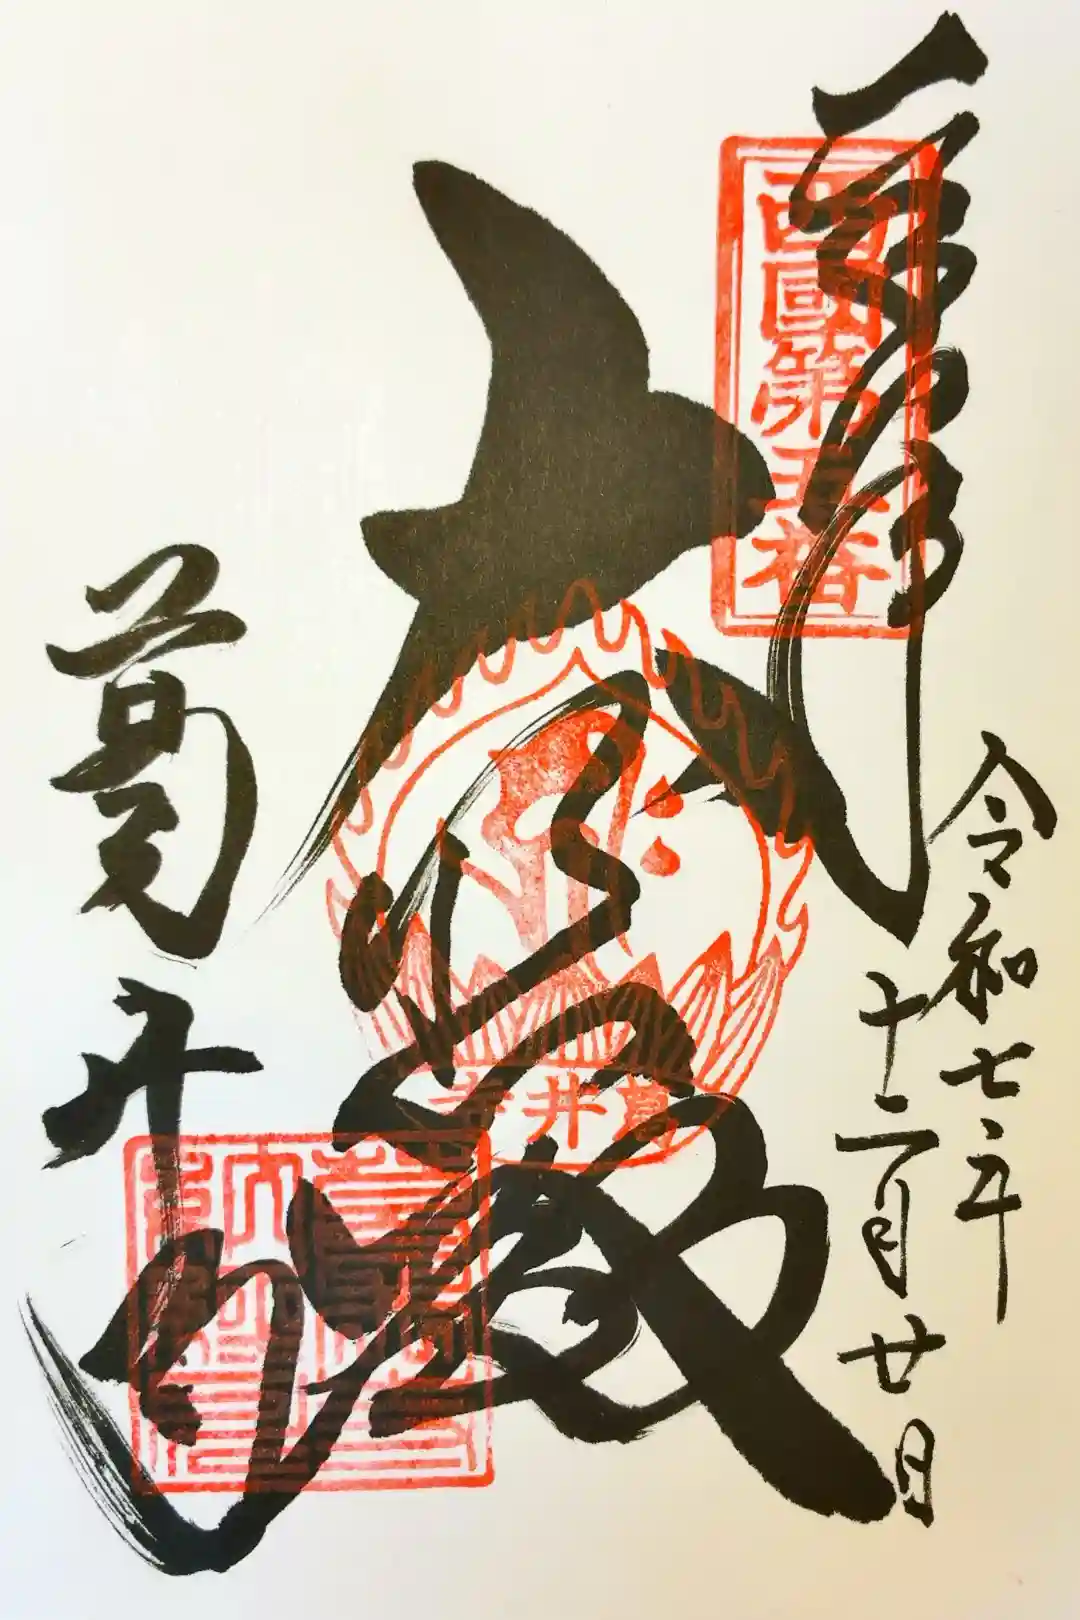 奉拝
西國第五番
令和七年
十二月廿日
大悲殿
葛井寺
葛井寺